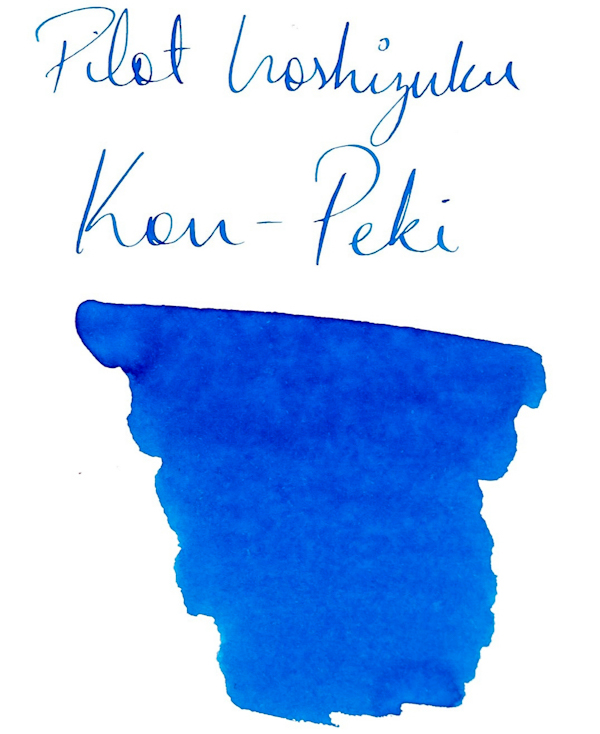 Pilot Iroshizuku
Kon-Peki